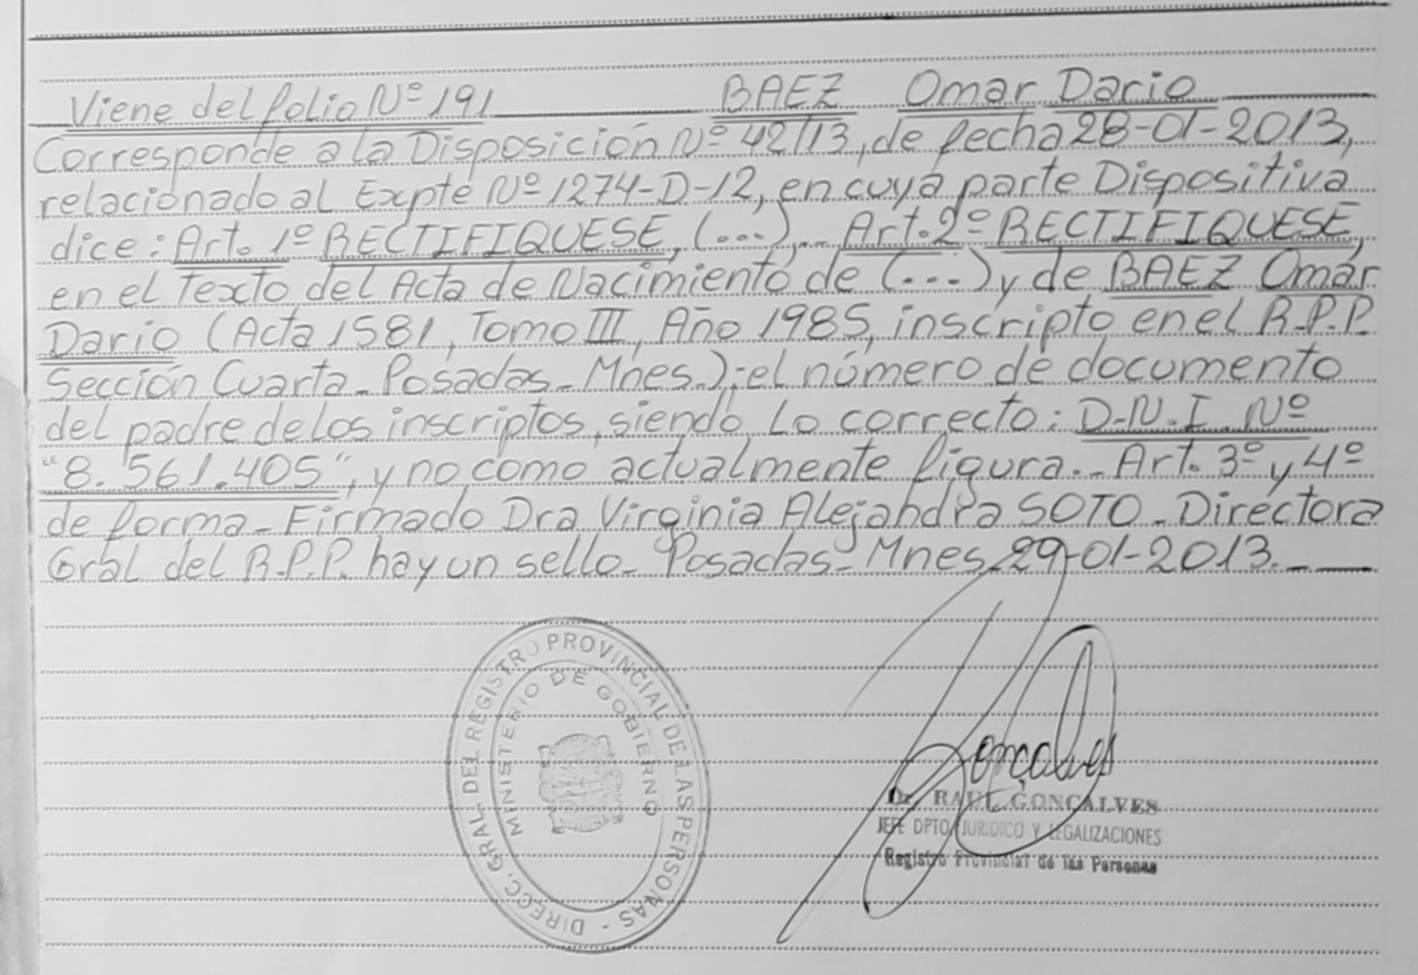 Viene del folio Nº 191 BAEZ Omar Dario
Corresponde a la Disposición Nº 42/13, de fecha 28-01-2013,
relacionado al Expte Nº 1274-D-12, en cuya parte Dispositiva
dice: Art. 1º RECTIFIQUESE, (...)_ Art. 2º RECTIFIQUESE,
en el Texto del Acta de Nacimiento de (...) y de BAEZ Omar
Dario (Acta 1581, Tomo III, Año 1985, inscripto en el R.P.P.
Sección Cuarta_ Posadas_ Mnes.); el número de documento
del padre de los inscriptos, siendo lo correcto: D.N.I. Nº
"8.561.405", y no como actualmente figura._ Art. 3º y 4º
de forma_ Firmado Dra Virginia Alejandra SOTO_ Directora
Gral del R.P.P. hay un sello_ Posadas_ Mnes 29-01-2013._
DIRECC. GRAL. DEL REGISTRO PROVINCIAL DE LAS PERSONAS -
MINISTERIO DE GOBIERNO
Gonçalves
Dr. RAUL GONÇALVES
JEFE DPTO JURIDICO Y LEGALIZACIONES
Registro Provincial de las Personas